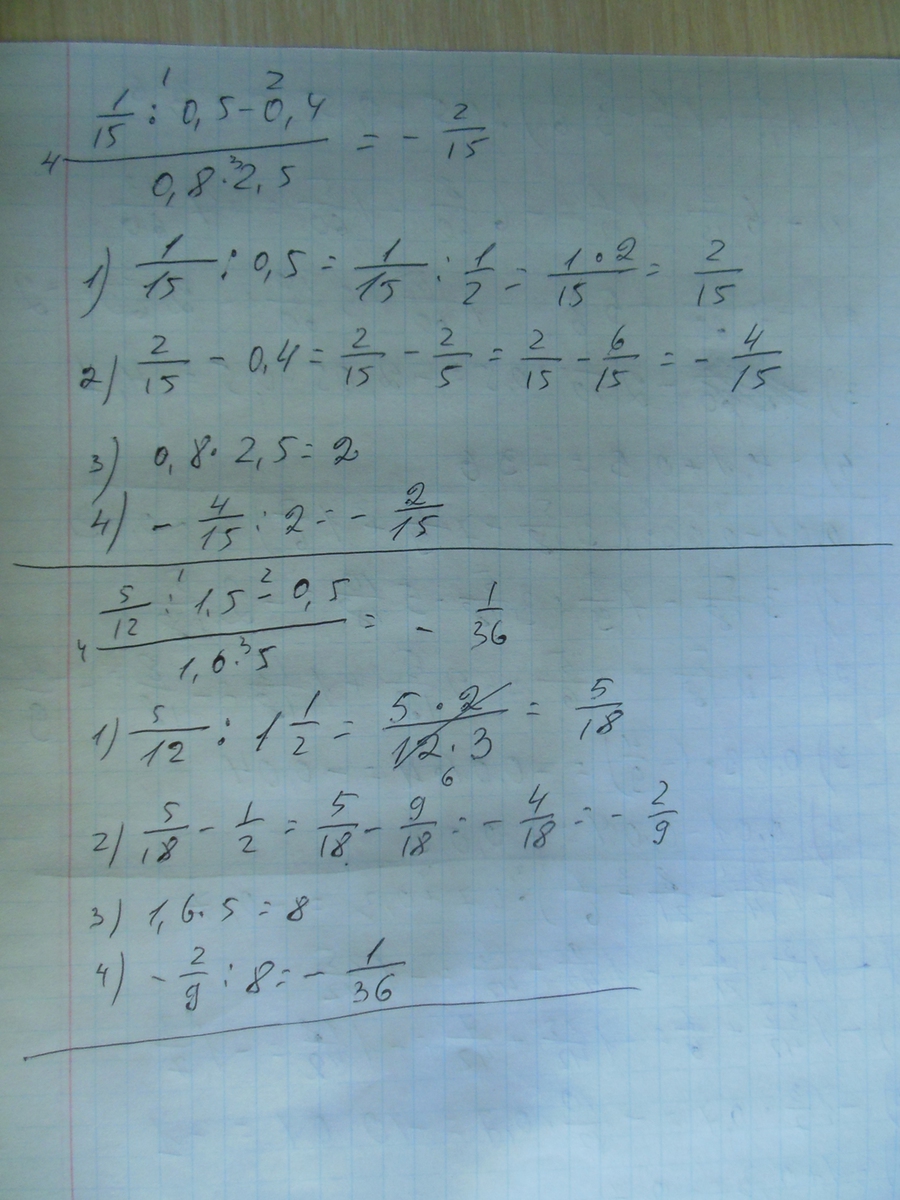 1 2
1/15 : 0,5 - 0,4
4 ——— = - 2/15
0,8 ·³ 2,5
1) 1/15 : 0,5 = 1/15 : 1/2 = 1·2/15 = 2/15
2) 2/15 - 0,4 = 2/15 - 2/5 = 2/15 - 6/15 = - 4/15
3) 0,8 · 2,5 = 2
4) - 4/15 : 2 = - 2/15
1 2
5/12 : 1,5 - 0,5
4 ——— = - 1/36
1,6 ·³ 5
1) 5/12 : 1 1/2 = 5·2/12·3 = 5/18
6
2) 5/18 - 1/2 = 5/18 - 9/18 = - 4/18 = - 2/9
3) 1,6 · 5 = 8
4) - 2/9 : 8 = - 1/36